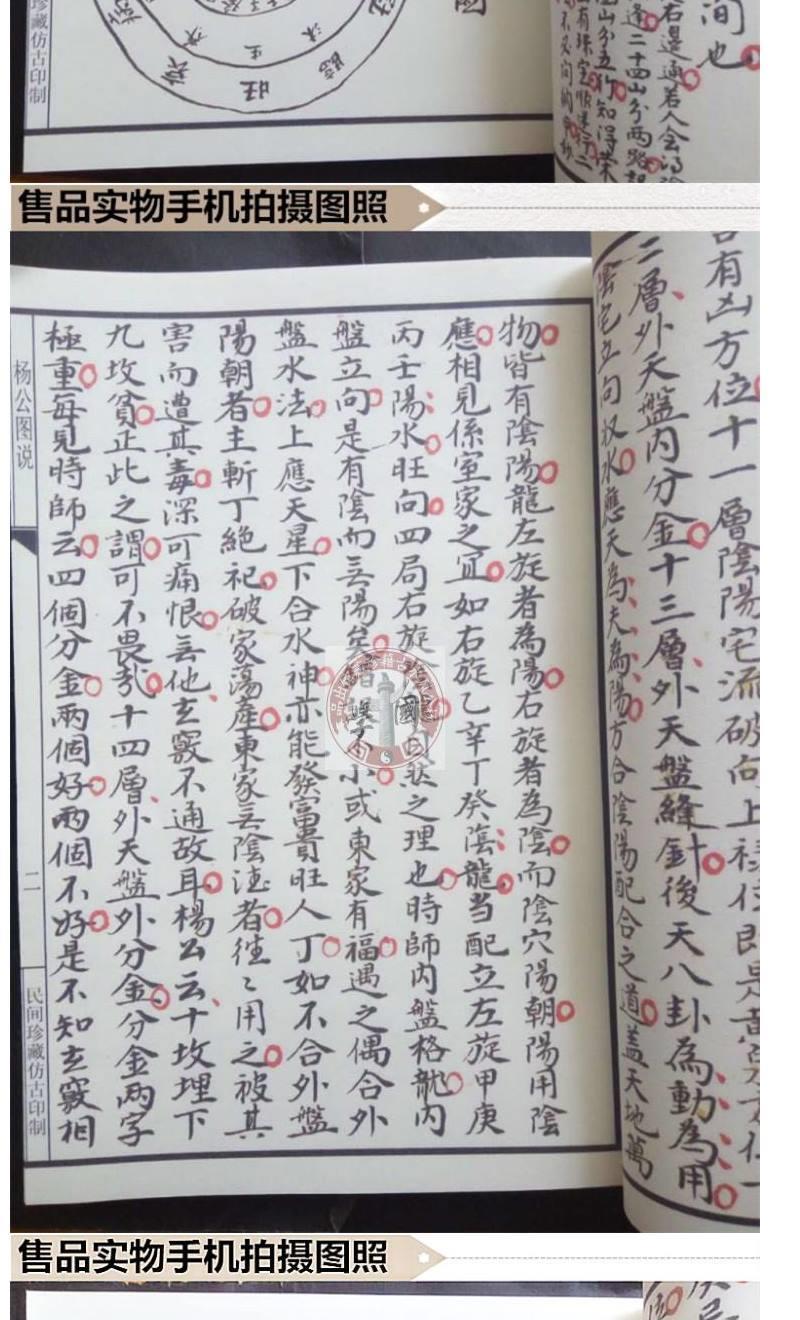 间也
珍藏仿古印制
旺
售品实物手机拍摄图照
有凶方位十一層陰陽宅流破向上祿位即是黄
二層外天盤内分金十三層外天盤縫針後天八卦為動為用
陰宅立向收水應天為夫為陽方合陰陽配合之道盖天地萬
物皆有陰陽龍左旋者為陽右旋者為陰而陰穴陽朝陽用陰
應相見係室家之宜如右旋乙辛丁癸陰龍当配立左旋甲庚
丙壬陽水旺向四局右旋之理也時師内盤格龍内
盤立向是有陰而無陽矣小或東家有福遇之偶合外
盤水法上應天星下合水神亦能發富貴旺人丁如不合外盤
陽朝者主斬丁絶祀破家蕩產東家無陰德者徃〻用之被其
害而遭其毒深可痛恨無他玄竅不通故耳楊公云十坟埋下
九坟貧正此之謂可不畏哉十四層外天盤外分金分金两字
極重每見時師云四個分金兩個好兩個不好是不知玄竅相
杨公图说
二
民间珍藏仿古印制
售品实物手机拍摄图照